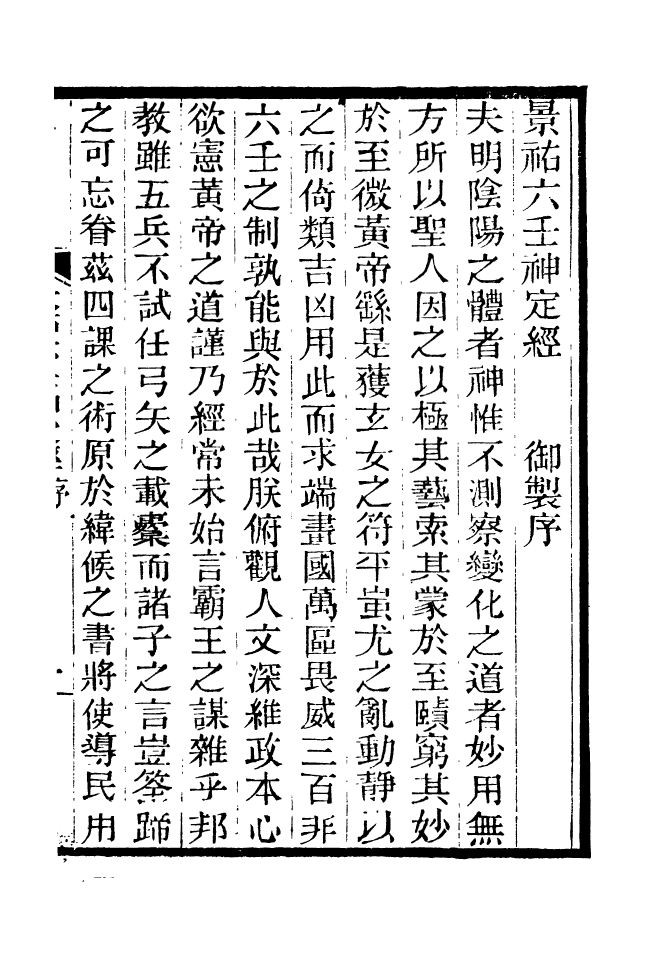 景祐六壬神定經　　御製序
夫明陰陽之體者神惟不測察變化之道者妙用無
方所以聖人因之以極其藝索其蒙於至賾窮其妙
於至微黃帝繇是獲玄女之符平蚩尤之亂動靜以
之而倚類吉凶用此而求端畫國萬區畏威三百非
六壬之制孰能與於此哉朕俯觀人文深維政本心
欲憲黃帝之道謹乃經常未始言霸王之謀雜乎邦
教雖五兵不試任弓矢之載櫜而諸子之言豈筌蹄
之可忘眷茲四課之術原於緯候之書將使導民用
序
一